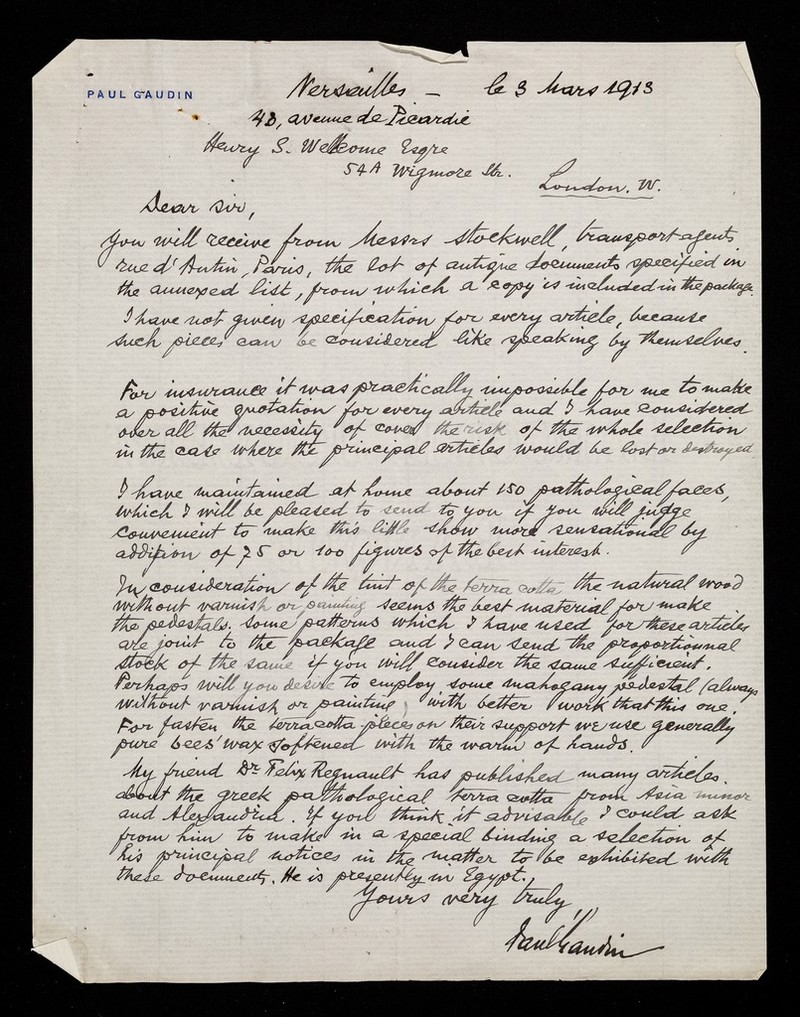 PAUL GAUDIN
Versailles — le 3 Mars 1913
43, avenue de Picardie
Henry S. Wellcome Esqre
54A Wigmore Str.
London. W.
Dear sir,
You will receive from Messrs Stockwell, transport agents
rue d'Antin, Paris, the lot of antique documents specified in
the annexed list, from which a copy is included in the package.
I have not given specification for every article, because
such pieces can be considered like speaking by themselves.
For insurance it was practically impossible for me to make
a positive quotation for every article and I have considered
over all the necessity of cover the risk of the whole selection
in the case where the principal articles would be lost or destroyed
I have maintained at home about 150 pathological faces,
which I will be pleased to send to you if you will judge
convenient to make this little show more sensational by
addition of 75 or 100 figures of the best interest.
In consideration of the tint of the terra cotta the natural wood
without varnish or painting seems the best material for make
the pedestals. Some patterns which I have used for these articles
are joint to the package and I can send the proportionnal
stock of the same if you will consider the same sufficient.
Perhaps will you desire to employ some mahogany pedestal (always
without varnish or painting) with better work that this one.
For fasten the terracotta pieces on their support we use generally
pure bees' wax softened with the warm of hands.
My friend Dr Felix Regnault has published many articles.
about the greek pathological terra cotta from Asia minor
and Alexandria. If you think it advisable I could ask
from him to make in a special binding a selection of
his principal notices in the matter to be exhibited with
these documents. He is presently in Egypt.
Yours very truly,
Paul Gaudin